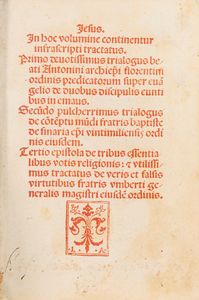 Jesus.
In hoc volumine continentur
infrascripti tractatus.
Primo deuotissimus trialogus be
ati Antonini archiepi florentini
ordinis predicatorum super euã
gelio de duobus discipulis eunti
bus in emaus.
Secũdo pulcherrimus trialogus
de cõtẽptu mũdi fratris baptiste
de finaria epi vintimiliensis ordi
nis eiusdem.
Tertio epistola de tribus essentia
libus votis religionis: & vtilissi
mus tractatus de veris et falsis
virtutibus fratris vmberti ge
neralis magistri eiusdẽ ordinis.